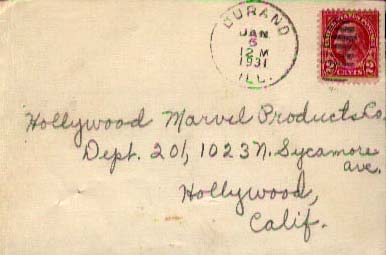 DURAND
JAN
5
12 M
1931
ILL.
UNITED STATES POSTAGE
2 CENTS 2
Hollywood Marvel Products Co.
Dept. 201, 1023 N. Sycamore
ave.
Hollywood,
Calif.